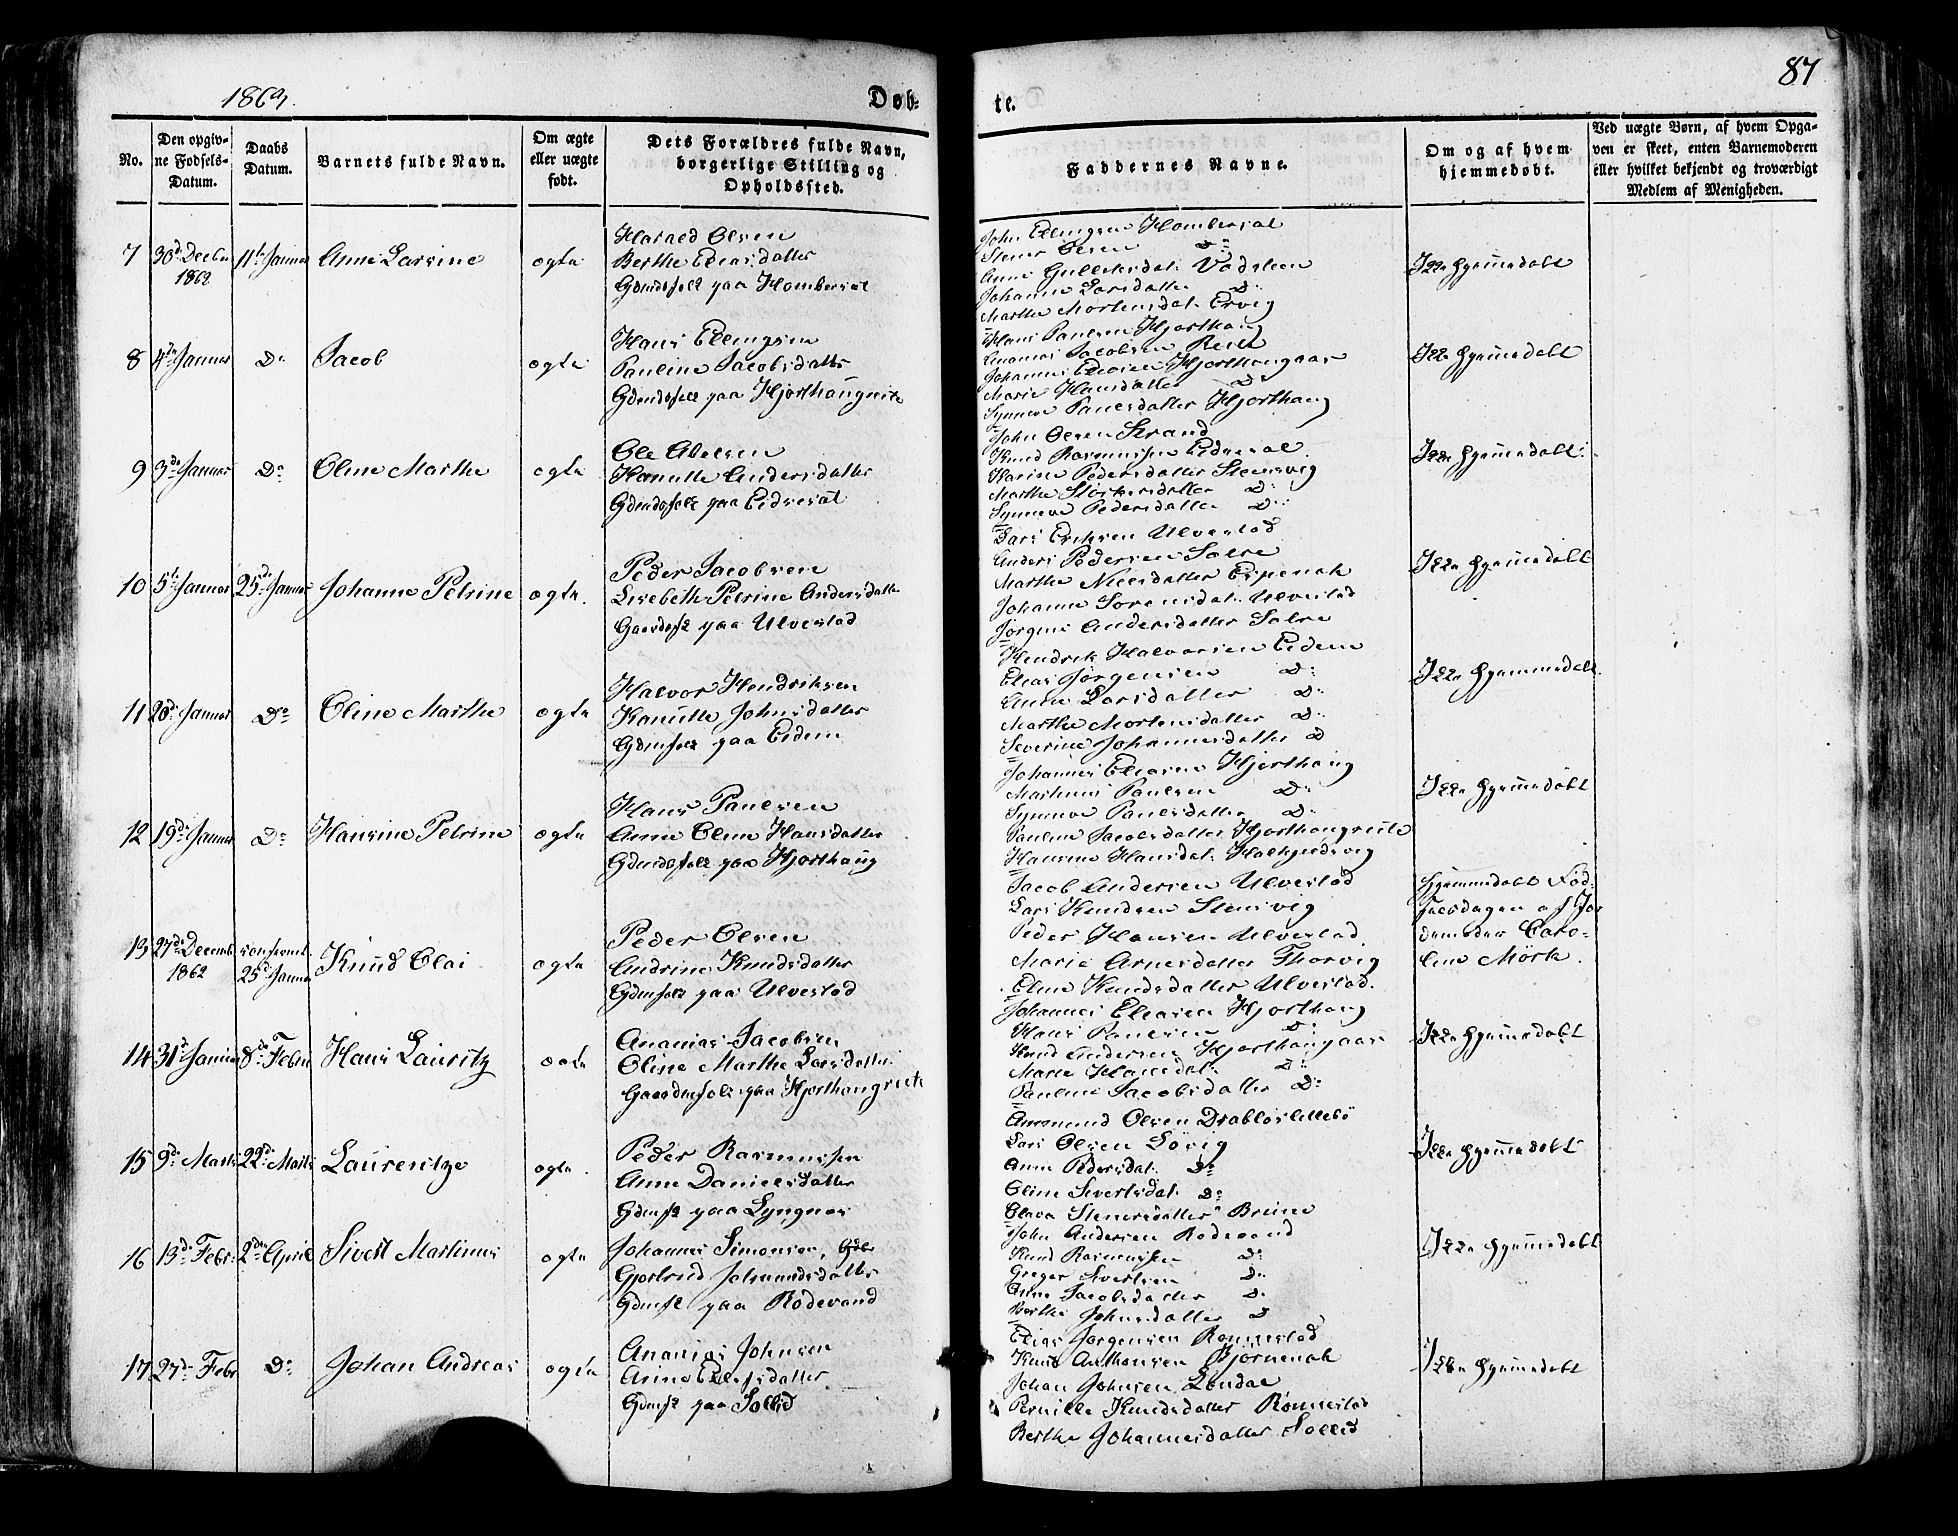 1863.
Døb-
te.
87
No.
Den opgiv-
ne Fødsels-
Datum.
Daabs
Datum.
Barnets fulde Navn.
Om ægte
eller uægte
født.
Dets Forældres fulde Navn,
borgerlige Stilling og
Opholdssted.
Faddernes Navne.
Om og af hvem
hjemmedøbt.
Ved uægte Børn, af hvem Opga-
ven er skeet, enten Barnemoderen
eller hvilket bekjendt og troværdigt
Medlem af Menigheden.
7 30d Decbr 1862 11te Januar Anne Larsine ægte
Harald Olsen
Berthe Eliasdatter
Gdmdsfolk paa Hombersæt
John Ellingsen Hombersæt
Stener Olsen Do
Anne Gulliksdat. Vadsteen
Johanne Larsdatter Do
Marthe Mortensdat. Ervig
Ikke hjemmedøbt
8 4de Januar Do Jacob ægte
Hans Ellingsen
Pauline Jacobsdatter
Gdmdsfolk paa Hjorthaugreite
Hans Paulsen Hjorthaug
Ananias Jacobsen Reite
Johannes Eliasen Hjorthaugaas
Marie Hansdatter Do
Synneve Paulsdatter Hjorthaug
Ikke hjemmedøbt
9 3die Januar Do Oline Marthe ægte
Ole Olsen
Kanutte Andersdatter
Gdmdsfolk paa Eidresæt
John Olsen Strand
Knud Rasmussen Eidresæt.
Karine Pedersdatter Stensvig
Marthe Størkersdatter Do
Synneve Pedersdatter Do
Ikke hjemmedøbt.
10 5te Januar 25de Januar Johanne Petrine ægte.
Peder Jacobsen
Lisebeth Petrine Andersdatter
Gaardsfk paa Ulvestad
Lars Eriksen Ulvestad
Anders Pedersen Salre
Marthe Nielsdatter Espenak
Johanne Sørensdat. Ulvestad
Jørgine Andersdatter Salre
Ikke hjemmedøbt
11 20d Januar Do Oline Marthe ægte
Halvor Hendriksen
Kanutte Johnsdatter
Gdmfolk paa Eidem
Hendrik Halvorsen Eidem
Elias Jørgensen Do
Anne Larsdatter Do
Marthe Mortensdatter Do
Severine Johannesdatter D
Ikke hjemmedøbt
12 19de Januar Do Hansine Petrine ægte
Hans Paulsen
Anne Oline Hansdatter
Gdmdsfolk paa Hjorthaug
Johannes Eliasen Hjorthaug
Martinus Paulsen Do
Synneve Paulsdatter Do
Pauline Jacobsdatter Hjorthaugreite
Hansine Hansdat.
Ikke hjemmedøbt
13 27de Decemb. 1862 25d Januar Knud Olai ægte
Peder Olsen
Andrine Knudsdatter
Gdmfolk paa Ulvestad
Jacob Andersen Ulvestad
Lars Knudsen Stensvig
Peder Hansen Ulvestad
Marie Arnesdatter Thorvig
Eline Knudsdatter Ulvestad.
Hjemmedøbt Fød-
selsdagen af Jor
demoder Caro-
line Mørk.
14 31d Januar 8de Febru Hans Lauritz ægte
Ananias Jacobsen
Oline Marthe Larsdatter
Gaardmfolk paa Hjorthaugreite
Johannes Eliasen Hjorthaug
Hans Paulsen Do
Knud Andersen Hjorthaugaas
Marie Hansdat. Do
Pauline Jacobsdatter Do
Ikke hjemmedøbt
15 9de Marts 22de Marts Laurentze ægte
Peder Rasmussen
Anne Danielsdatter
Gdmfk paa Lyngnes
Aamund Olsen Drabløslillebø
Lars Olsen Løvig
Anne Pedersdat. Do
Oline Sivertsdat. Do
Olava Stenersdatter Brune
Ikke hjemmedøbt
16 13de Febr. 2den April Sivert Martinus ægte
Johannes Simonsen,
Gjertrud Johnsdatter
Gdmfk paa Rødevand
John Andersen Rødevand
Knud Rasmussen Do
Greger Sivertsen Do
Anne Jacobsdatter Do
Berthe Johnsdatter D
Ikke hjemmedøbt
17 27de Febr Do Johan Andreas ægte
Ananias Johnsen
Anne
Gdmfk paa Sollid
Elias Jørgensen Rønnestad
Knud Anthonsen Bjørnenak
Johan Johnsen Løndal
Pernille Knudsdatter Rønnestad
Berthe Johannesdatter Sollid
Ikke hjemmedøbt